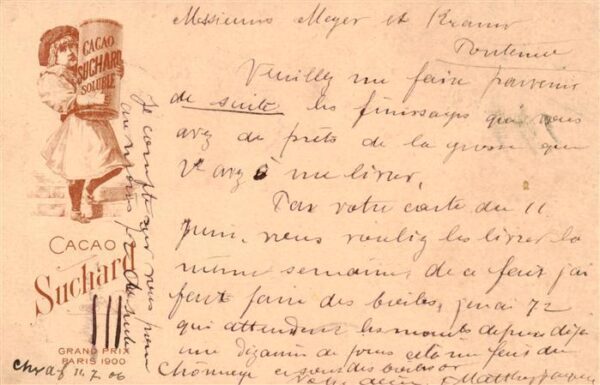 Messieurs Meyer et Kramer
Pontenet
Veuillez me faire parvenir
de suite les finissages que vous
avez de prêts de la grosse que
V. avez à me livrer.
Par votre carte du 11
juin, vous vouliez les livrer la
même semaine, de ce fait j'ai
fait faire des boites, j'en ai 72
qui attendent les mouvts depuis déjà
une dizaine de jours cela me fait du
chômage
Votre
Matthey
Je compte sur vous pour
au moins
de suite
CACAO
SUCHARD
SOLUBLE
CACAO
Suchard
GRAND PRIX
PARIS 1900
11.7.06